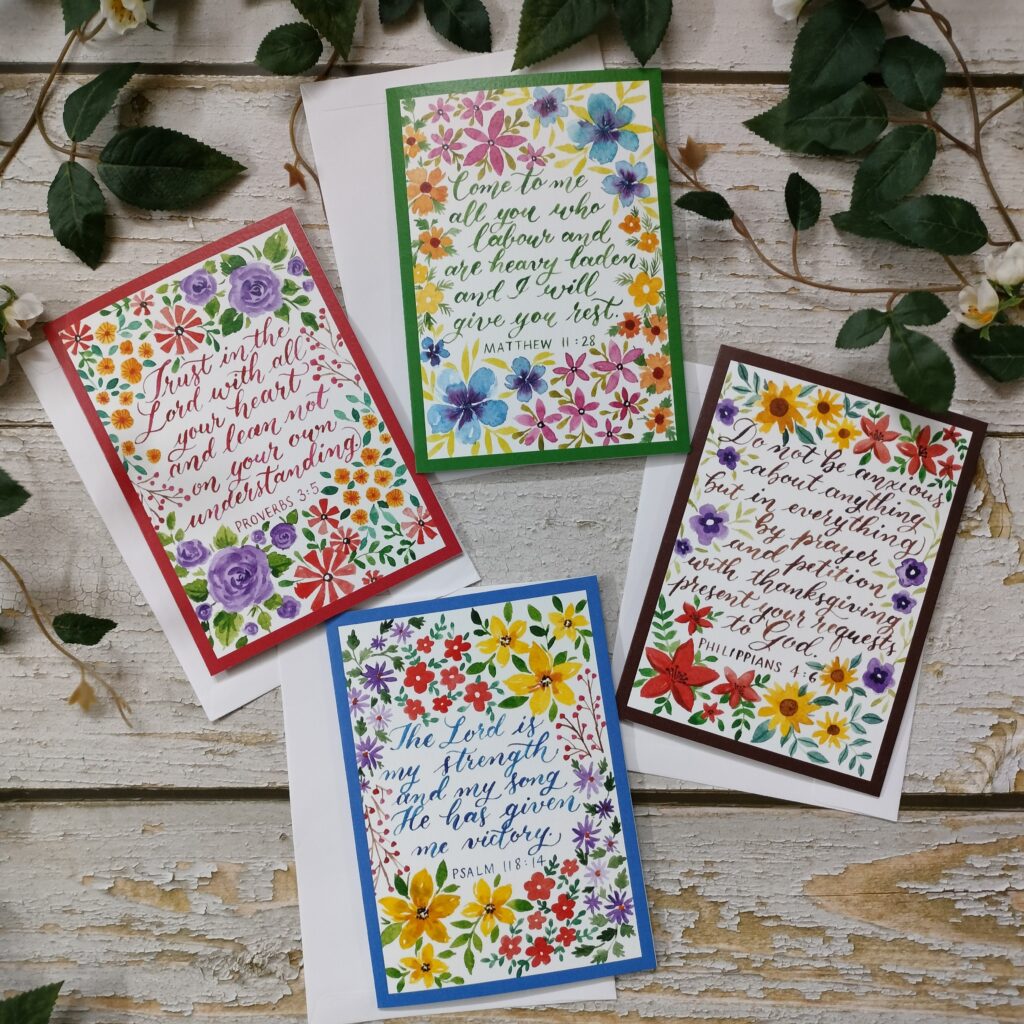 Come to me
all you who
labour and
are heavy laden
and I will
give you rest.
MATTHEW 11:28
Trust in the
Lord with all
your heart
and lean not
on your own
understanding
PROVERBS 3:5
Do not be anxious
about anything
but in everything
by prayer
and petition
with thanksgiving
present your requests
to God.
PHILIPPIANS 4:6
The Lord is
my strength
and my song
He has given
me victory
PSALM 118:14